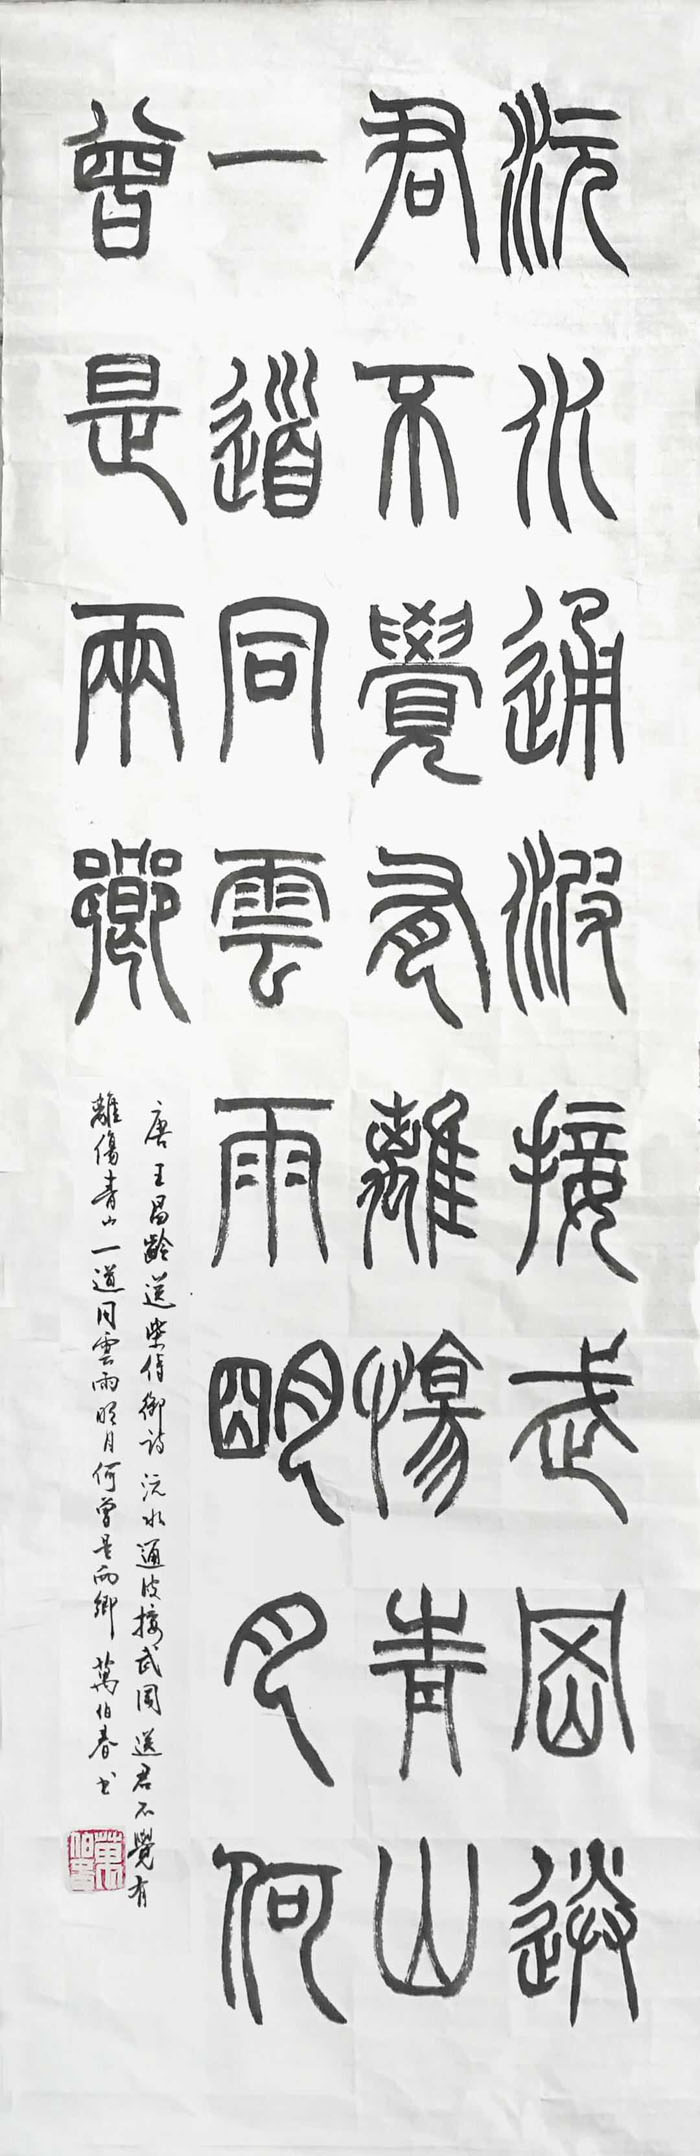 沅水通波接武岡送
君不覺有離傷青山
一道同雲雨朙月何
曾是兩鄉
唐王昌齡送柴侍御詩沅水通波接武岡送君不覺有
離傷青山一道同雲雨明月何曾是兩鄉萬伯春书